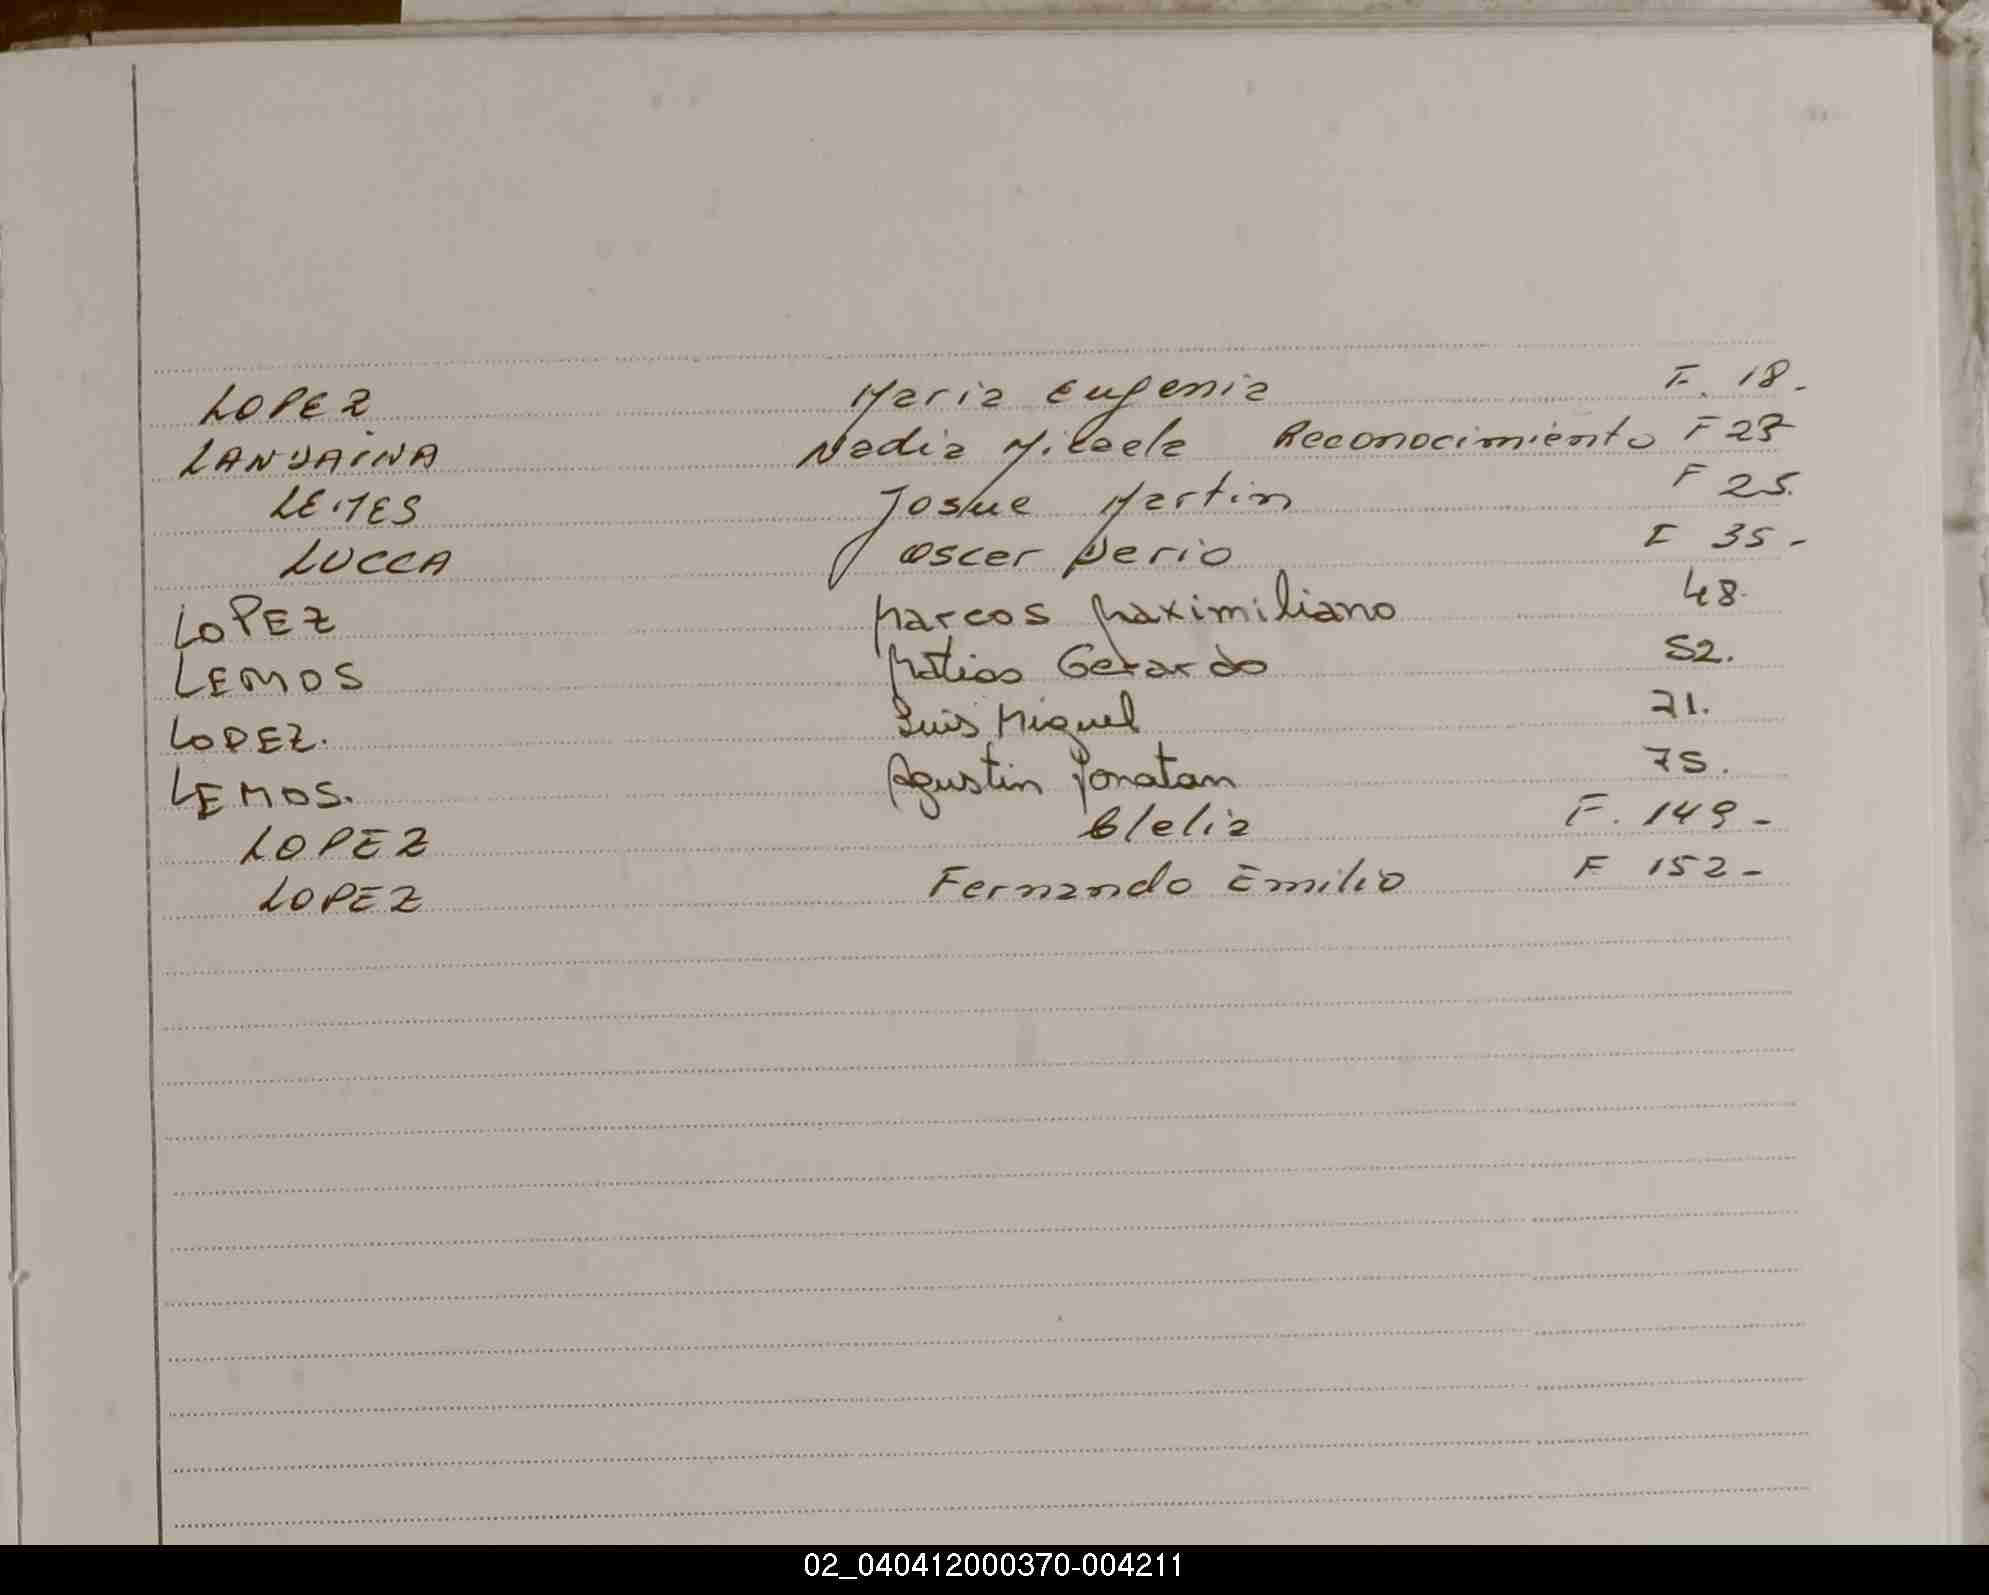 LOPEZ Maria Eugenia F. 18.
LANDAINA Nadia Micaela Reconocimiento F 23
LEITES Josue Martin F 25.
LUCCA Oscar Dario F 35-
LOPEZ Marcos Maximiliano 48.
LEMOS Matias Gerardo 52.
LOPEZ. Luis Miguel 71.
LEMOS. Agustin Jonatan 75.
LOPEZ Clelia F. 149-
LOPEZ Fernando Emilio F 152-
02_040412000370-004211